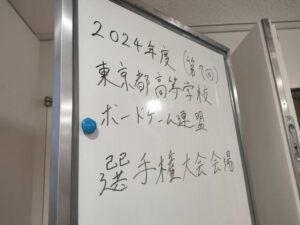 2024年度(第 回)
東京都高等学校
ボードゲーム連盟
選手権大会会場